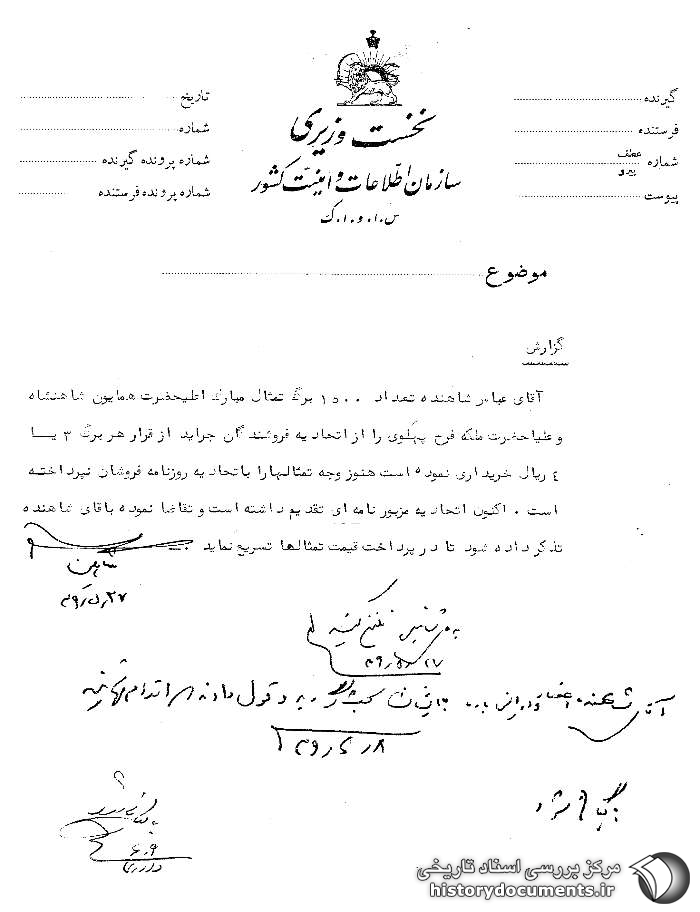 نخست وزیری
سازمان اطلاعات و امنیت کشور
س.ا.و.ا.ک
گیرنده
فرستنده
شماره عطف پیرو
پیوست
تاریخ
شماره
شماره پرونده گیرنده
شماره پرونده فرستنده
موضوع
گزارش
آقای عباس شاهنده تعداد ۱۵۰۰ برگ تمثال مبارک اعلیحضرت همایون شاهنشاه
و علیاحضرت ملکه فرح پهلوی را از اتحادیه فروشندگان جراید از قرار هر برگ ۳ یا
۴ ریال خریداری نموده است هنوز وجه تمثالها را با تحادیه روزنامه فروشان نپرداخته
است . اکنون اتحادیه مزبور نامه ای تقدیم داشته است و تقاضا نموده باقای شاهنده
تذکر داده شود تا در پرداخت قیمت تمثالها تسریع نماید
۳۹/۵/۲۷
۳۹/۵/۲۷
آقای شاهنده
قول دادند اقدام نمایند
۳۹/۶/۸
بایگانی شود
۶/۹
مرکز بررسی اسناد تاریخی
historydocuments.ir